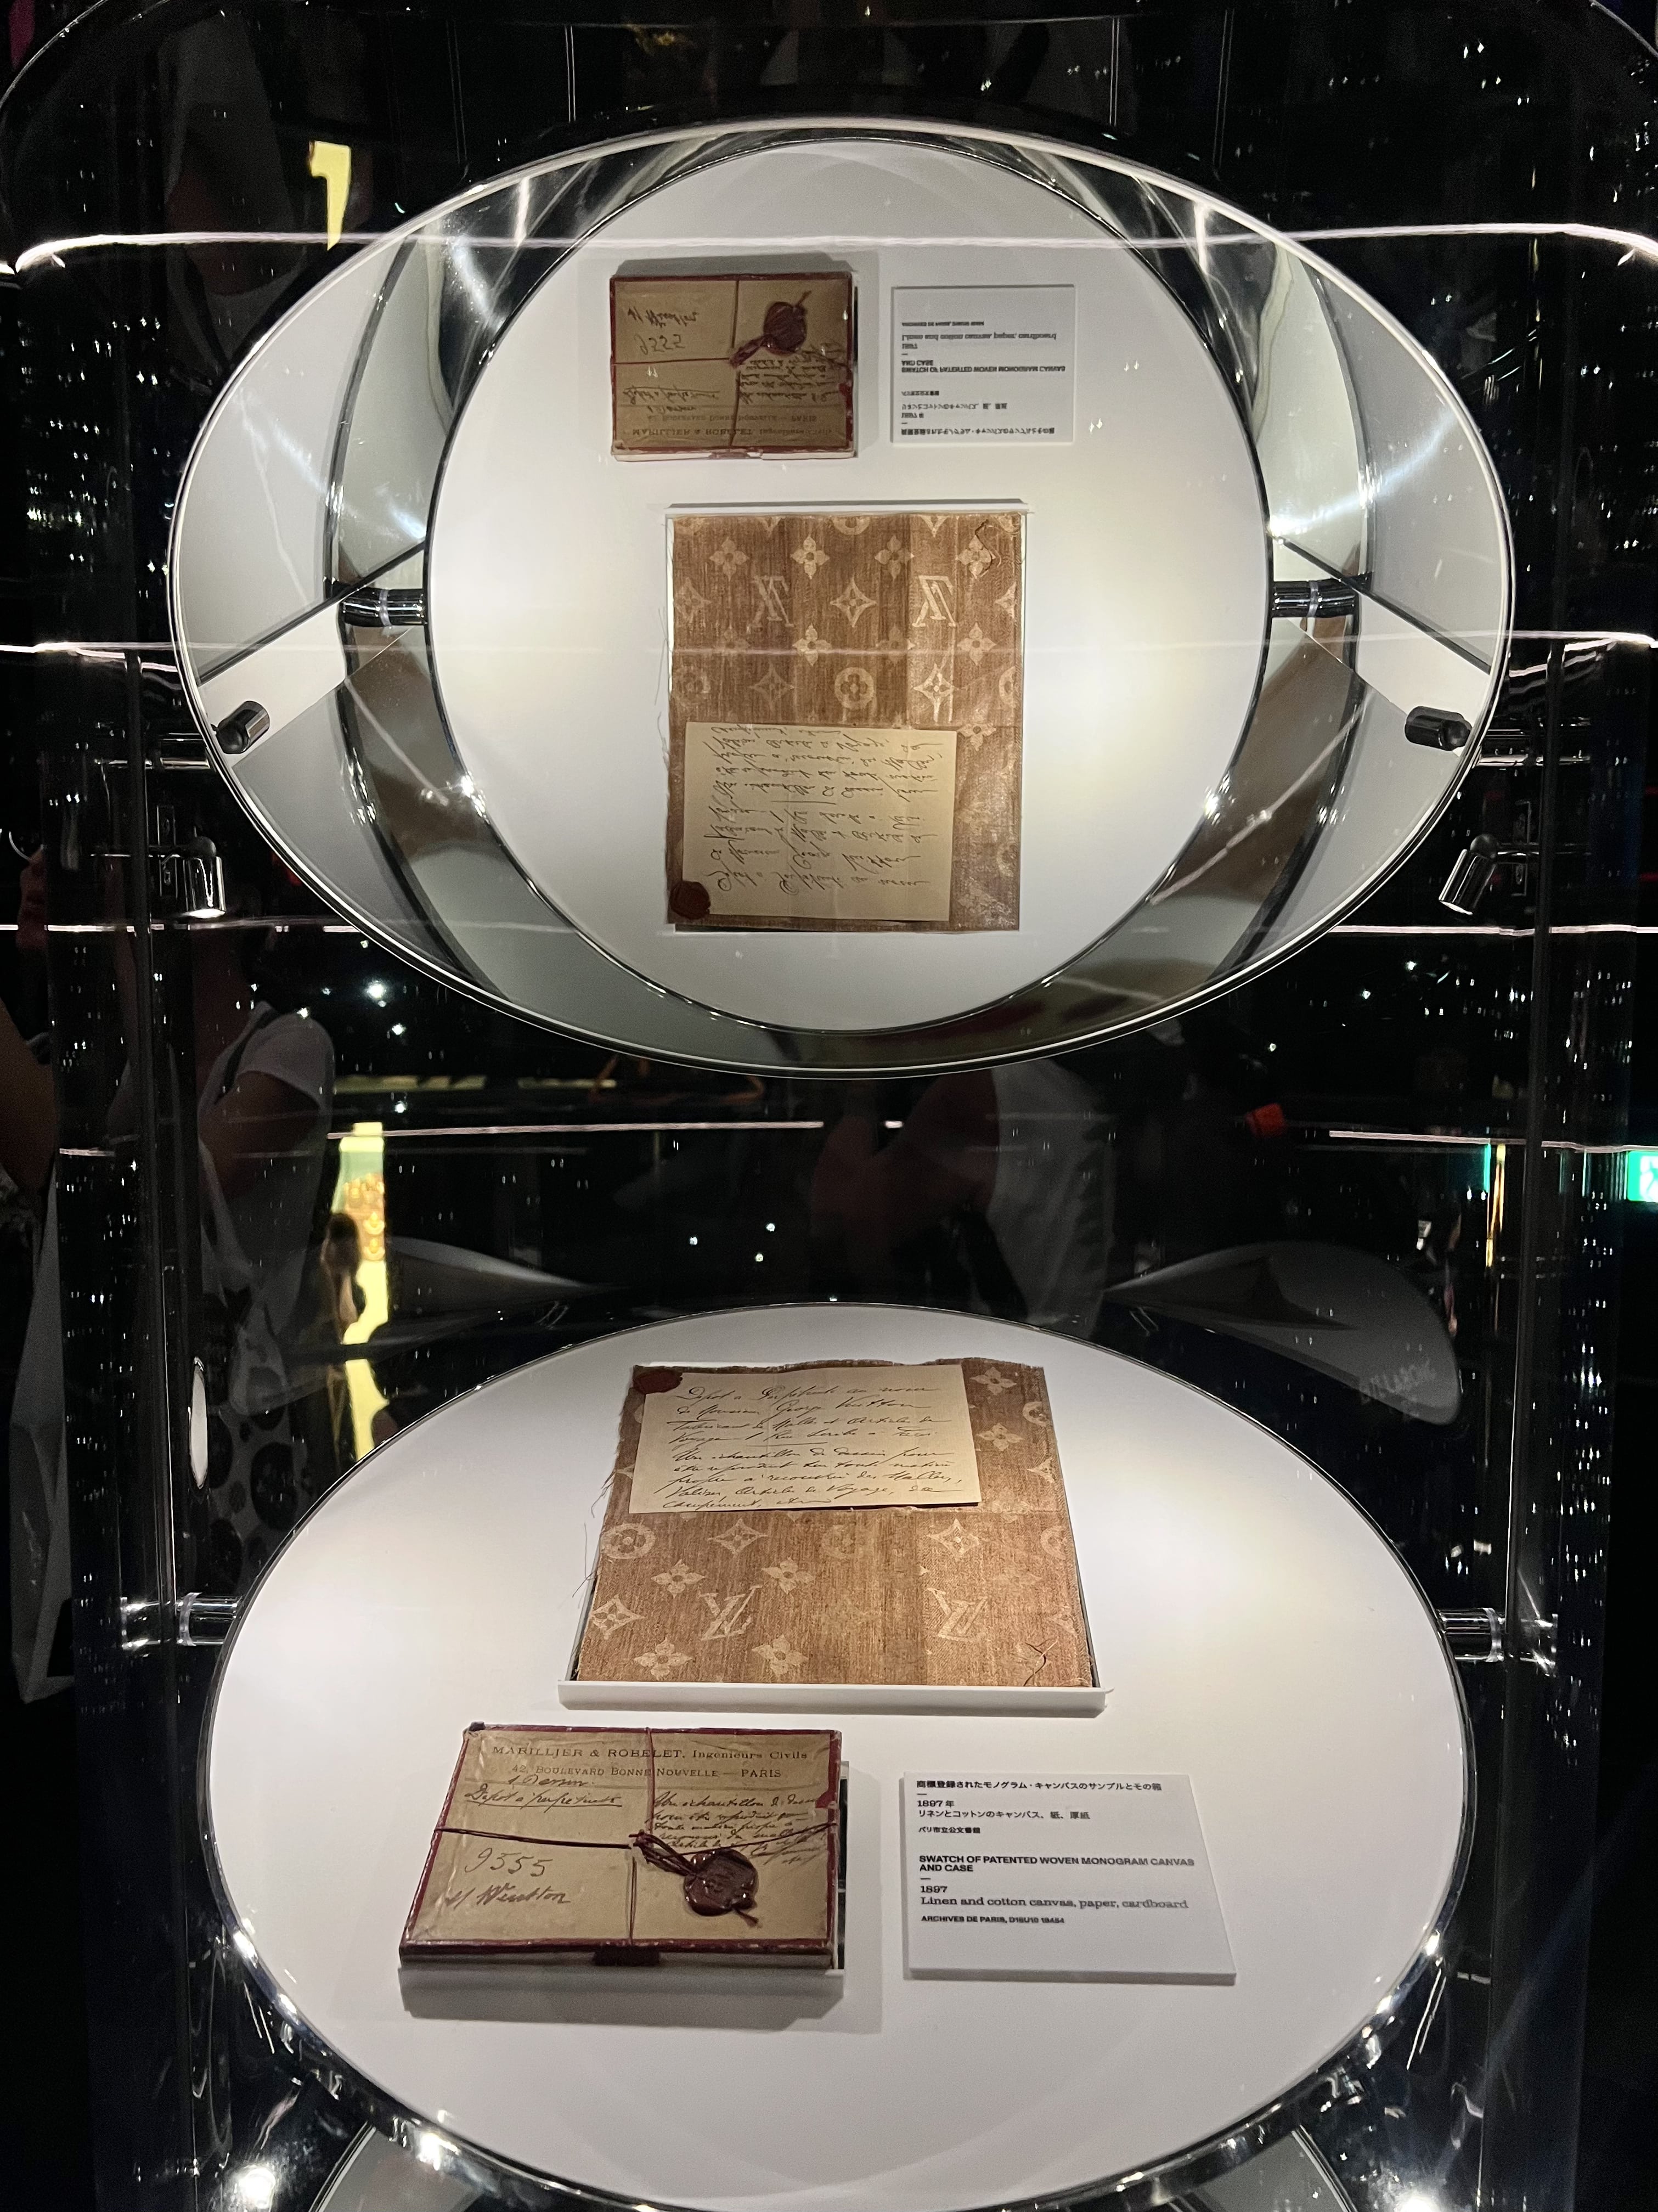 Dépôt à Perpétuité au nom
de Monsieur George Vuitton
Fabricant de Malles et Articles de
Voyage 1 Rue Scribe à Paris
Un échantillon de dessin pour
être reproduit sur toute matière
propre à recouvrir des Malles,
Valises, Articles de Voyage, de
campement, etc
MARILLIER & ROBELET, Ingénieurs Civils
42, BOULEVARD BONNE NOUVELLE — PARIS
1 Dessin.
Dépôt à perpétuité
Un échantillon de dessin
pour être reproduit sur
toute matière propre à
recouvrir des malles
9555
M Vuitton
商標登録されたモノグラム・キャンバスのサンプルとその箱
1897 年
リネンとコットンのキャンバス、紙、厚紙
パリ市立公文書館
SWATCH OF PATENTED WOVEN MONOGRAM CANVAS
AND CASE
1897
Linen and cotton canvas, paper, cardboard
ARCHIVES DE PARIS, D18U10 19454